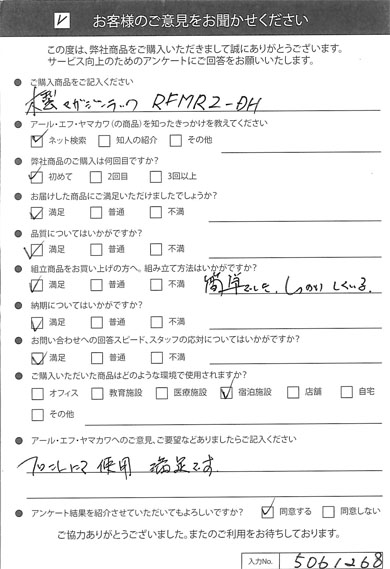 お客様のご意見をお聞かせください
この度は、弊社商品をご購入いただきまして誠にありがとうございます。
サービス向上のためのアンケートにご回答をお願いいたします。
● ご購入商品をご記入ください
マガジンラック RFMR2-DH
● アール・エフ・ヤマカワ(の商品)を知ったきっかけを教えてください
☑ ネット検索 □ 知人の紹介 □ その他
● 弊社商品のご購入は何回目ですか?
☑ 初めて □ 2回目 □ 3回以上
● お届けした商品にご満足いただけましたでしょうか?
☑ 満足 □ 普通 □ 不満
● 品質についてはいかがですか?
☑ 満足 □ 普通 □ 不満
● 組立商品をお買い上げの方へ。組み立て方法はいかがですか?
☑ 満足 □ 普通 □ 不満 簡単でした。しっかりしている。
● 納期についてはいかがですか?
☑ 満足 □ 普通 □ 不満
● お問い合わせへの回答スピード、スタッフの応対についてはいかがですか?
☑ 満足 □ 普通 □ 不満
● ご購入いただいた商品はどのような環境で使用されますか?
□ オフィス □ 教育施設 □ 医療施設 ☑ 宿泊施設 □ 店舗 □ 自宅
□ その他
● アール・エフ・ヤマカワへのご意見、ご要望などありましたらご記入ください
フロントにて使用 満足です。
● アンケート結果を紹介させていただいてもよろしいですか? ☑ 同意する □ 同意しない
ご協力ありがとうございました。またのご利用をお待ちしております。
入力No. 5061268